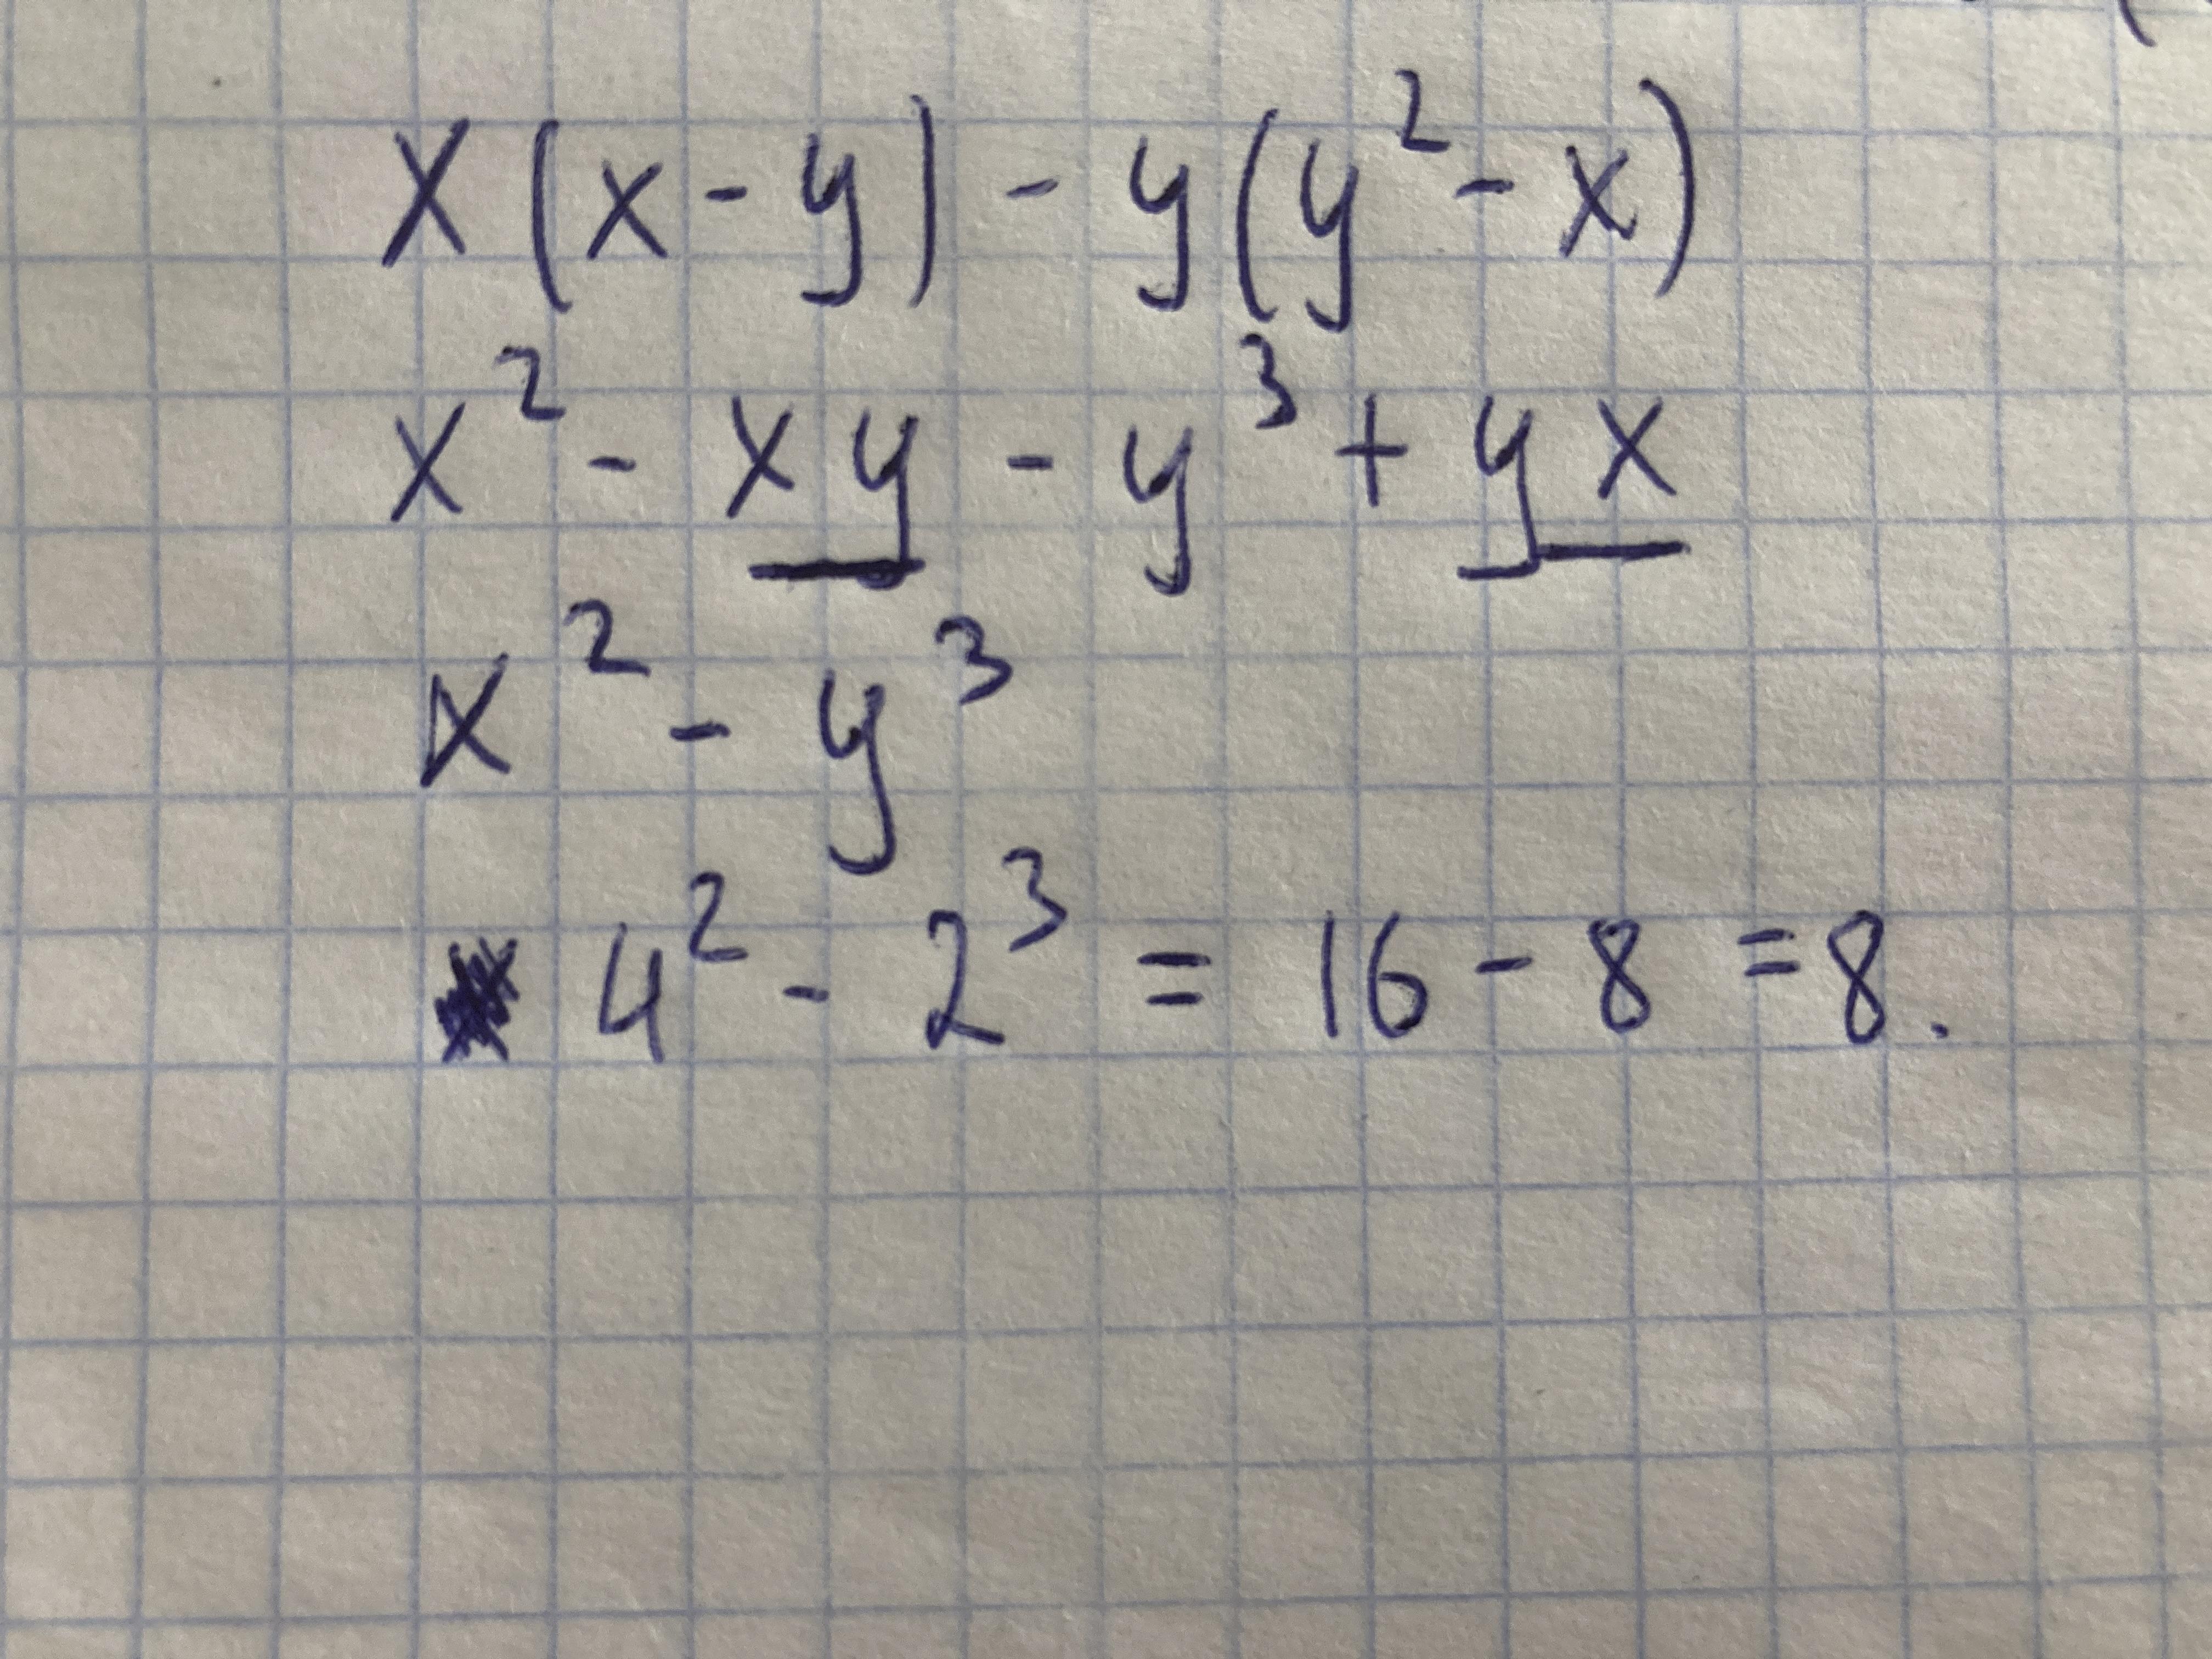 x(x-y)-y(y²-x)
x²-xy-y³+yx
x²-y³
4²-2³=16-8=8.